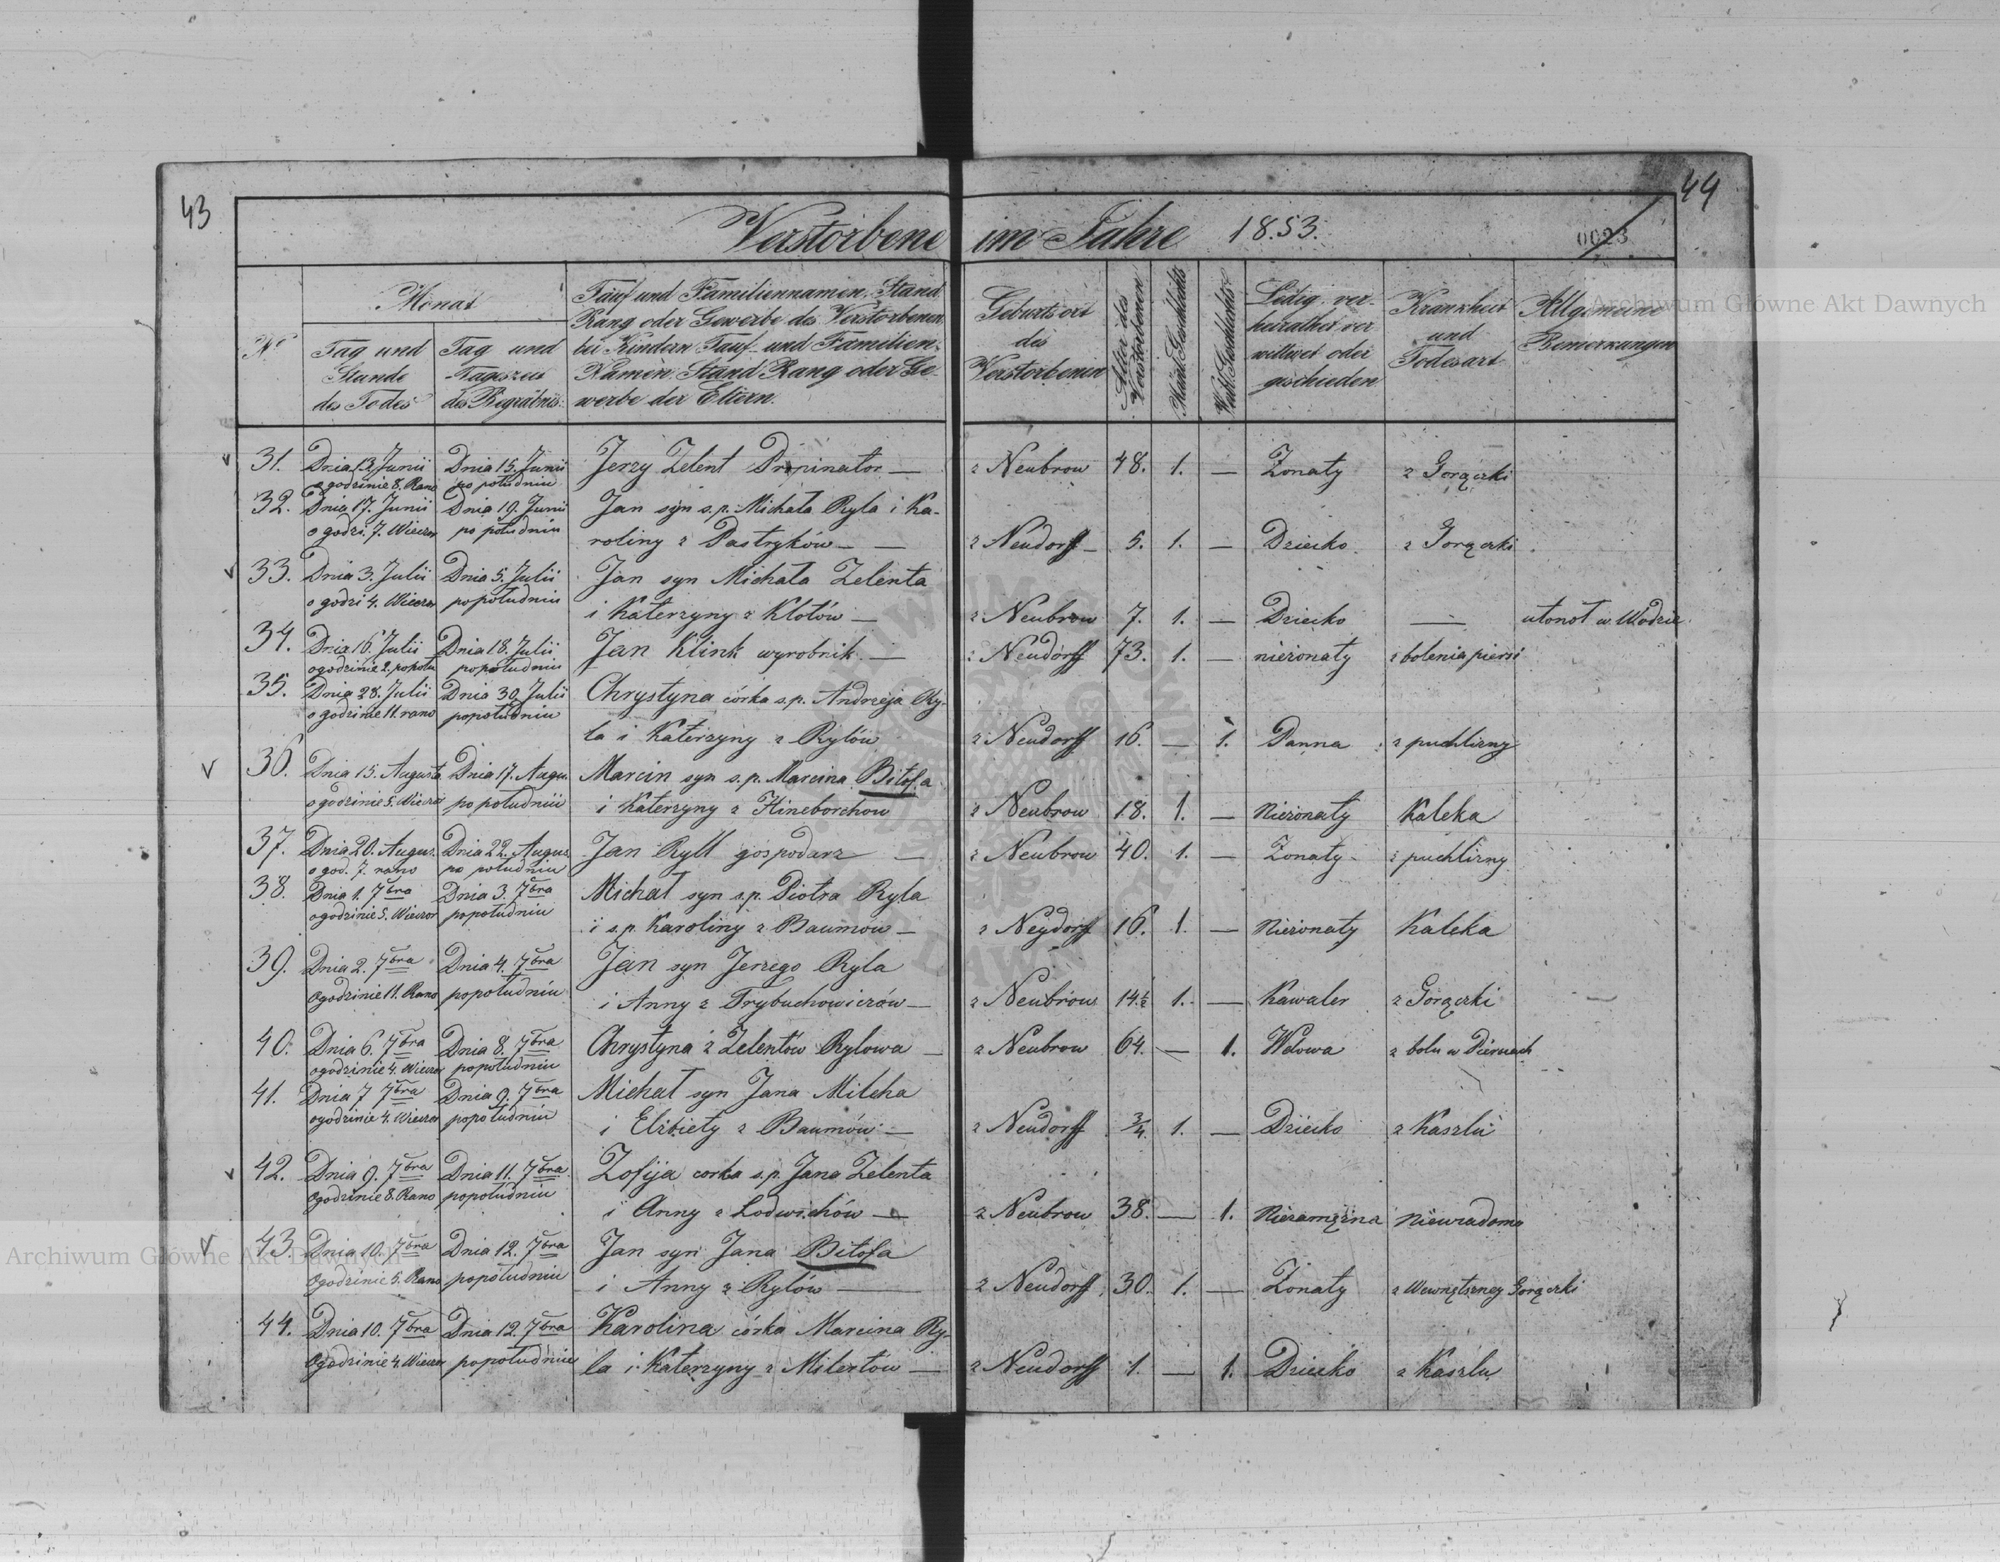 43
44
Verstorbene im Jahre 1853.
0023
Nº
Monat
Tag und
Stunde
des Todes
Tag und
Tageszeit
des Begräbnis:
Tauf und Familiennamen, Stand
Rang oder Gewerbe des Verstorbenen
bei Kindern Tauf- und Familien-
Namen Stand Rang oder Ge-
werbe der Eltern.
Geburtsort
des
Verstorbenen
Alter des
Verstorbenen
Mänl: Geschlechts
Weibl: Geschlechts
Ledig, ver-
heirathet ver
wittwet oder
geschieden
Krankheit
und
Todesart
Allgemeine
Bemerkungen
Archiwum Główne Akt Dawnych
31. Dnia 13. Junii Dnia 15. Junii Jerzy Zelent Propinator — z Neubrow 48. 1. — Zonaty z Gorączki
o godzinie 8. Rano po południu
32. Dnia 17. Junii Dnia 19. Junii Jan syn s.p. Michała Ryla i Ka-
o godzi. 7. Wieczor po południu roliny z Pastryków — — z Neudorff — 5. 1. — Dziecko z Gorączki
33. Dnia 3. Julii Dnia 5. Julii Jan syn Michała Zelenta
o godzi 4. Wieczor popołudniu i Katerzyny z Klotów — z Neubrow 7. 1. — Dziecko — utonoł w Wodzie
34. Dnia 16. Julii Dnia 18. Julii Jan Klink wyrobnik — z Neudorff 73. 1. — nieżonaty z bolenia piersi
o godzinie 2. popołu popołudniu
35. Dnia 28. Julii Dnia 30. Julii Chrystyna córka s.p. Andrzeja Ry-
o godzinie 11. rano popołudniu la i Katerzyny z Rylów z Neudorff 16. — 1. Panna z puchlizny
36. Dnia 15. Augusta Dnia 17. Augu. Marcin syn s.p. Marcina Bitofa
o godzinie 5. Wieczo po południu i Katerzyny z Hineborchow z Neubrow 18. 1. — Nieżonaty Kaleka
37. Dnia 20. Augus. Dnia 22. Augus Jan Ryll gospodarz — z Neubrow 40. 1. — Zonaty z puchlizny
o god. 7. rano po południu
38. Dnia 1. 7bra Dnia 3. 7bra Michał syn s.p. Piotra Ryla
o godzinie 5. Wieczor popołudniu i s.p. Karoliny z Baumow — z Neydorf 16. 1. — Nieżonaty Kaleka
39. Dnia 2. 7bra Dnia 4. 7bra Jan syn Jerzego Ryla
Ogodzinie 11. Rano popołudniu i Anny z Trybuchowiczów — z Neubrow 14½ 1. — Kawaler z Gorączki
40. Dnia 6. 7bra Dnia 8. 7bra Chrystyna z Zelentów Rylowa — z Neubrow 64. — 1. Wdowa z bolu w Piersiach
ogodzinie 4. Wieczor popołudniu
41. Dnia 7 7bra Dnia 9. 7bra Michał syn Jana Milcha
ogodzinie 4. Wieczor popołudniu i Elżbiety z Baumów — z Neudorff ¾ 1. — Dziecko z Kaszlu
42. Dnia 9. 7bra Dnia 11. 7bra Zofija corka s.p. Jana Zelenta
Ogodzinie 8. Rano popołudniu i Anny z Lodwichów — z Neubrow 38. — 1. Niezamężna Niewiadomo
43. Dnia 10. 7bra Dnia 12. 7bra Jan syn Jana Bitofa
Ogodzinie 5. Rano popołudniu i Anny z Rylów — z Neudorff 30. 1. — Zonaty z Wewnętszney Gorączki
44. Dnia 10. 7bra Dnia 12. 7bra Karolina córka Marcina Ry-
Ogodzinie 4. Wieczor popołudniu la i Katerzyny z Milertow — z Neudorff 1. — 1. Dziecko z Kaszlu
Archiwum Główne Akt Dawnych